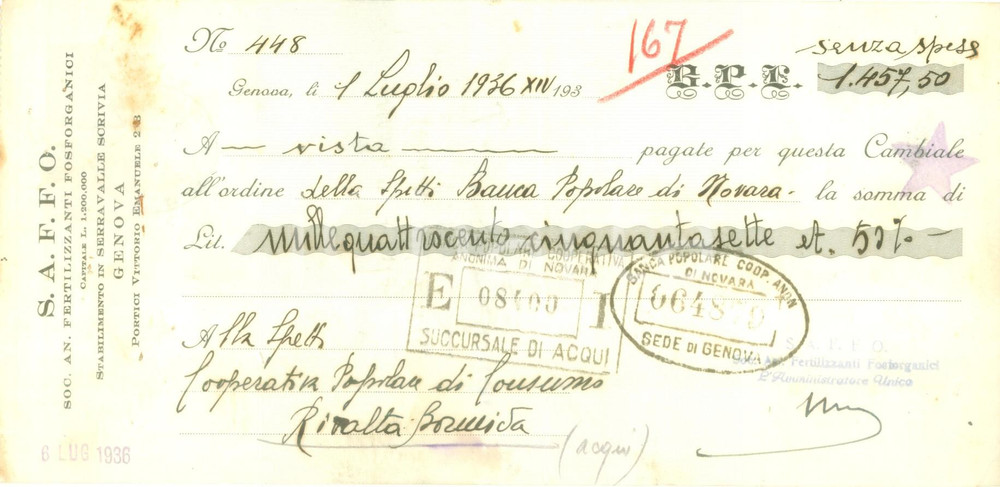 S. A. F. F. O.
SOC. AN. FERTILIZZANTI FOSFORGANICI
CAPITALE L. 1.200.000
STABILIMENTO IN SERRAVALLE SCRIVIA
GENOVA
PORTICI VITTORIO EMANUELE 2 B
No 448
167
senza spese
Genova, li 1 Luglio 1936 XIV 193
B.P.L. 1.457,50
A — vista — pagate per questa Cambiale
all'ordine della Spett. Banca Popolare di Novara - la somma di
Lit. millequattrocento cinquantasette et. 50% —
COOPERATIVA
ANONIMA DI NOVARA
E 08400 I
SUCCURSALE DI ACQUI
BANCA POPOLARE COOP. ANON
DI NOVARA
SEDE DI GENOVA
Alla Spett.
Cooperativa Popolare di Consumo
Rivalta Bormida
(acqui)
S. A. F. F. O.
Soc. An. Fertilizzanti Fosforganici
L'Amministratore Unico
6 LUG 1936